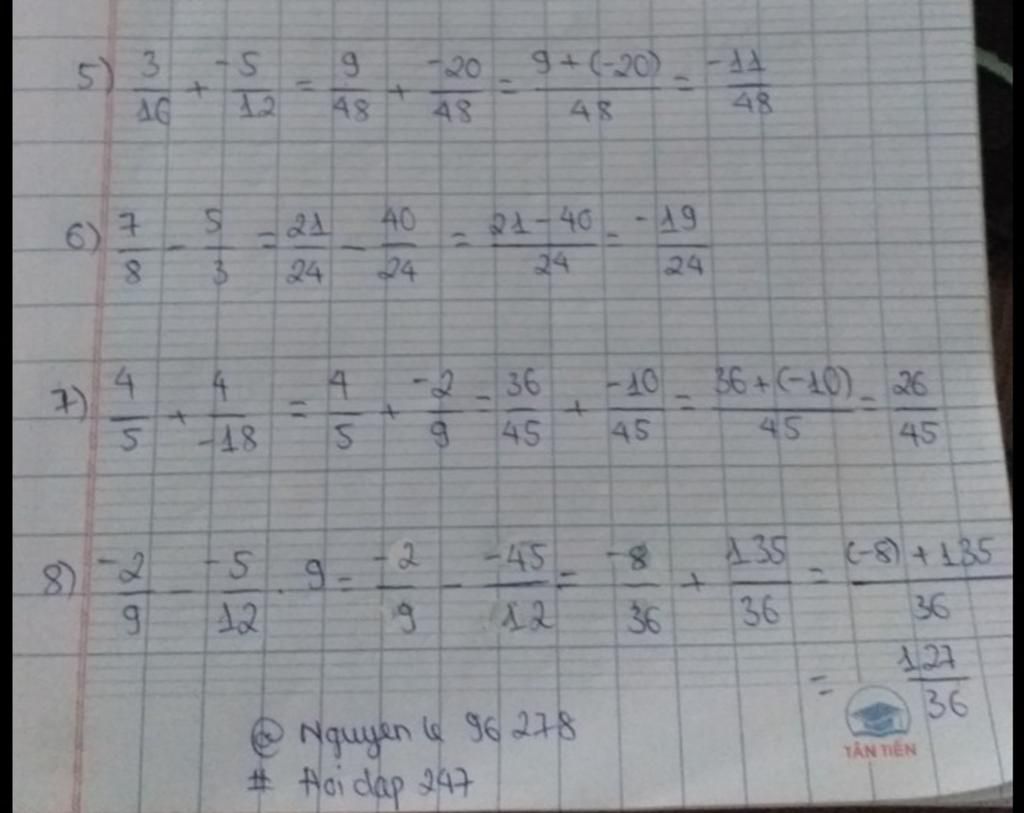 5) 3/16 + -5/12 = 9/48 + -20/48 = 9+(-20)/48 = -11/48
6) 7/8 - 5/3 = 21/24 - 40/24 = 21-40/24 = -19/24
7) 4/5 + 4/-18 = 4/5 + -2/9 = 36/45 + -10/45 = 36+(-10)/45 = 26/45
8) -2/9 - -5/12 . 9 = -2/9 - -45/12 = -8/36 + 135/36 = (-8)+135/36
= 127/36
@ Nguyen le 96 278
# Hoi dap 247
TÂN TIẾN